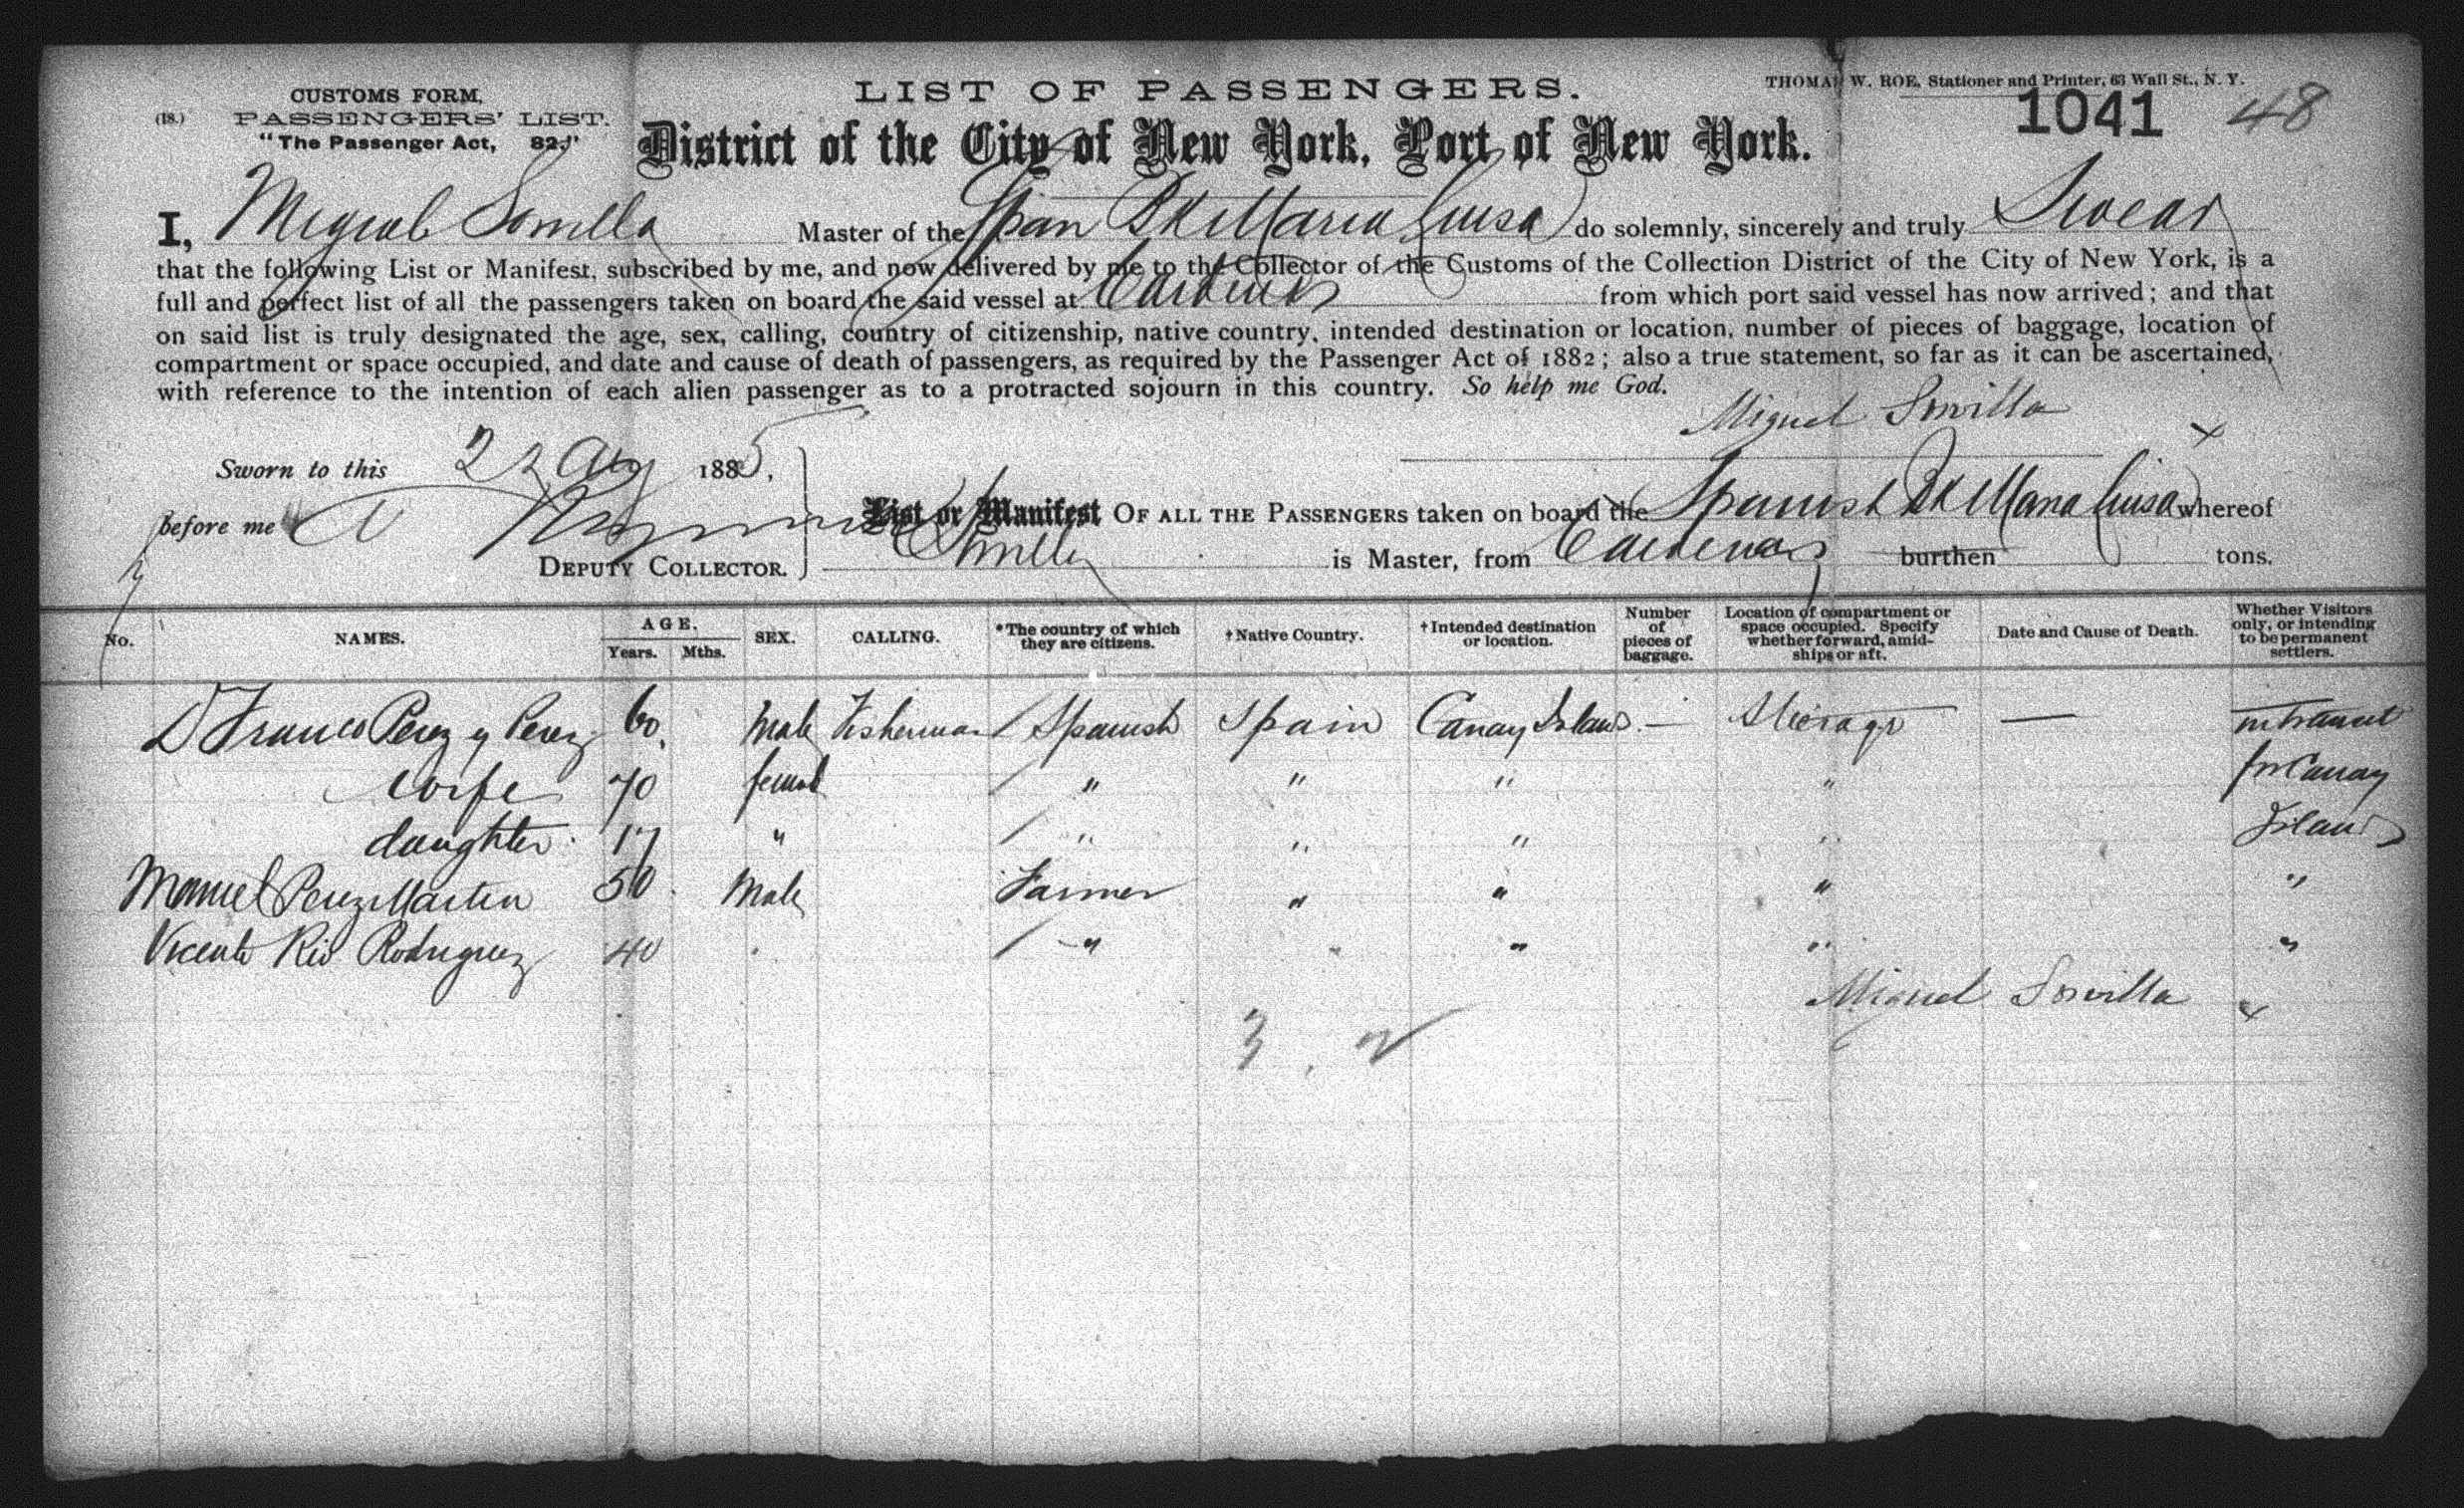 CUSTOMS FORM,
(18.) PASSENGERS' LIST.
"The Passenger Act, 82."
LIST OF PASSENGERS.
THOMAS W. ROE, Stationer and Printer, 63 Wall St., N. Y.
1041 48
District of the City of New York, Port of New York.
I, Miguel Sorvilla Master of the Span Bk Maria Luisa do solemnly, sincerely and truly Swear
that the following List or Manifest, subscribed by me, and now delivered by me to the Collector of the Customs of the Collection District of the City of New York, is a
full and perfect list of all the passengers taken on board the said vessel at Cardenas from which port said vessel has now arrived; and that
on said list is truly designated the age, sex, calling, country of citizenship, native country, intended destination or location, number of pieces of baggage, location of
compartment or space occupied, and date and cause of death of passengers, as required by the Passenger Act of 1882; also a true statement, so far as it can be ascertained,
with reference to the intention of each alien passenger as to a protracted sojourn in this country. So help me God.
Miguel Sorvilla x
Sworn to this 22 Aug 1885,
before me
DEPUTY COLLECTOR.
List or Manifest OF ALL THE PASSENGERS taken on board the Spanish Bk Maria Luisa whereof
Sorvilla is Master, from Cardenas burthen tons.
No. NAMES. AGE. Years. Mths. SEX. CALLING. *The country of which they are citizens. †Native Country. †Intended destination or location. Number of pieces of baggage. Location of compartment or space occupied. Specify whether forward, amidships or aft. Date and Cause of Death. Whether Visitors only, or intending to be permanent settlers.
D Franco Perez y Perez 60 Male Fisherman / Spanish Spain Canay Islans — Steerage — in transit
wife 70 femal / " " " " for Canay
daughter 17 " / " " " " Islans
Manuel Perez Martin 50 Male Farmer " " " "
Vicente Rio Rodriguez 40 " / " " " " "
Miguel Sorvilla x
3